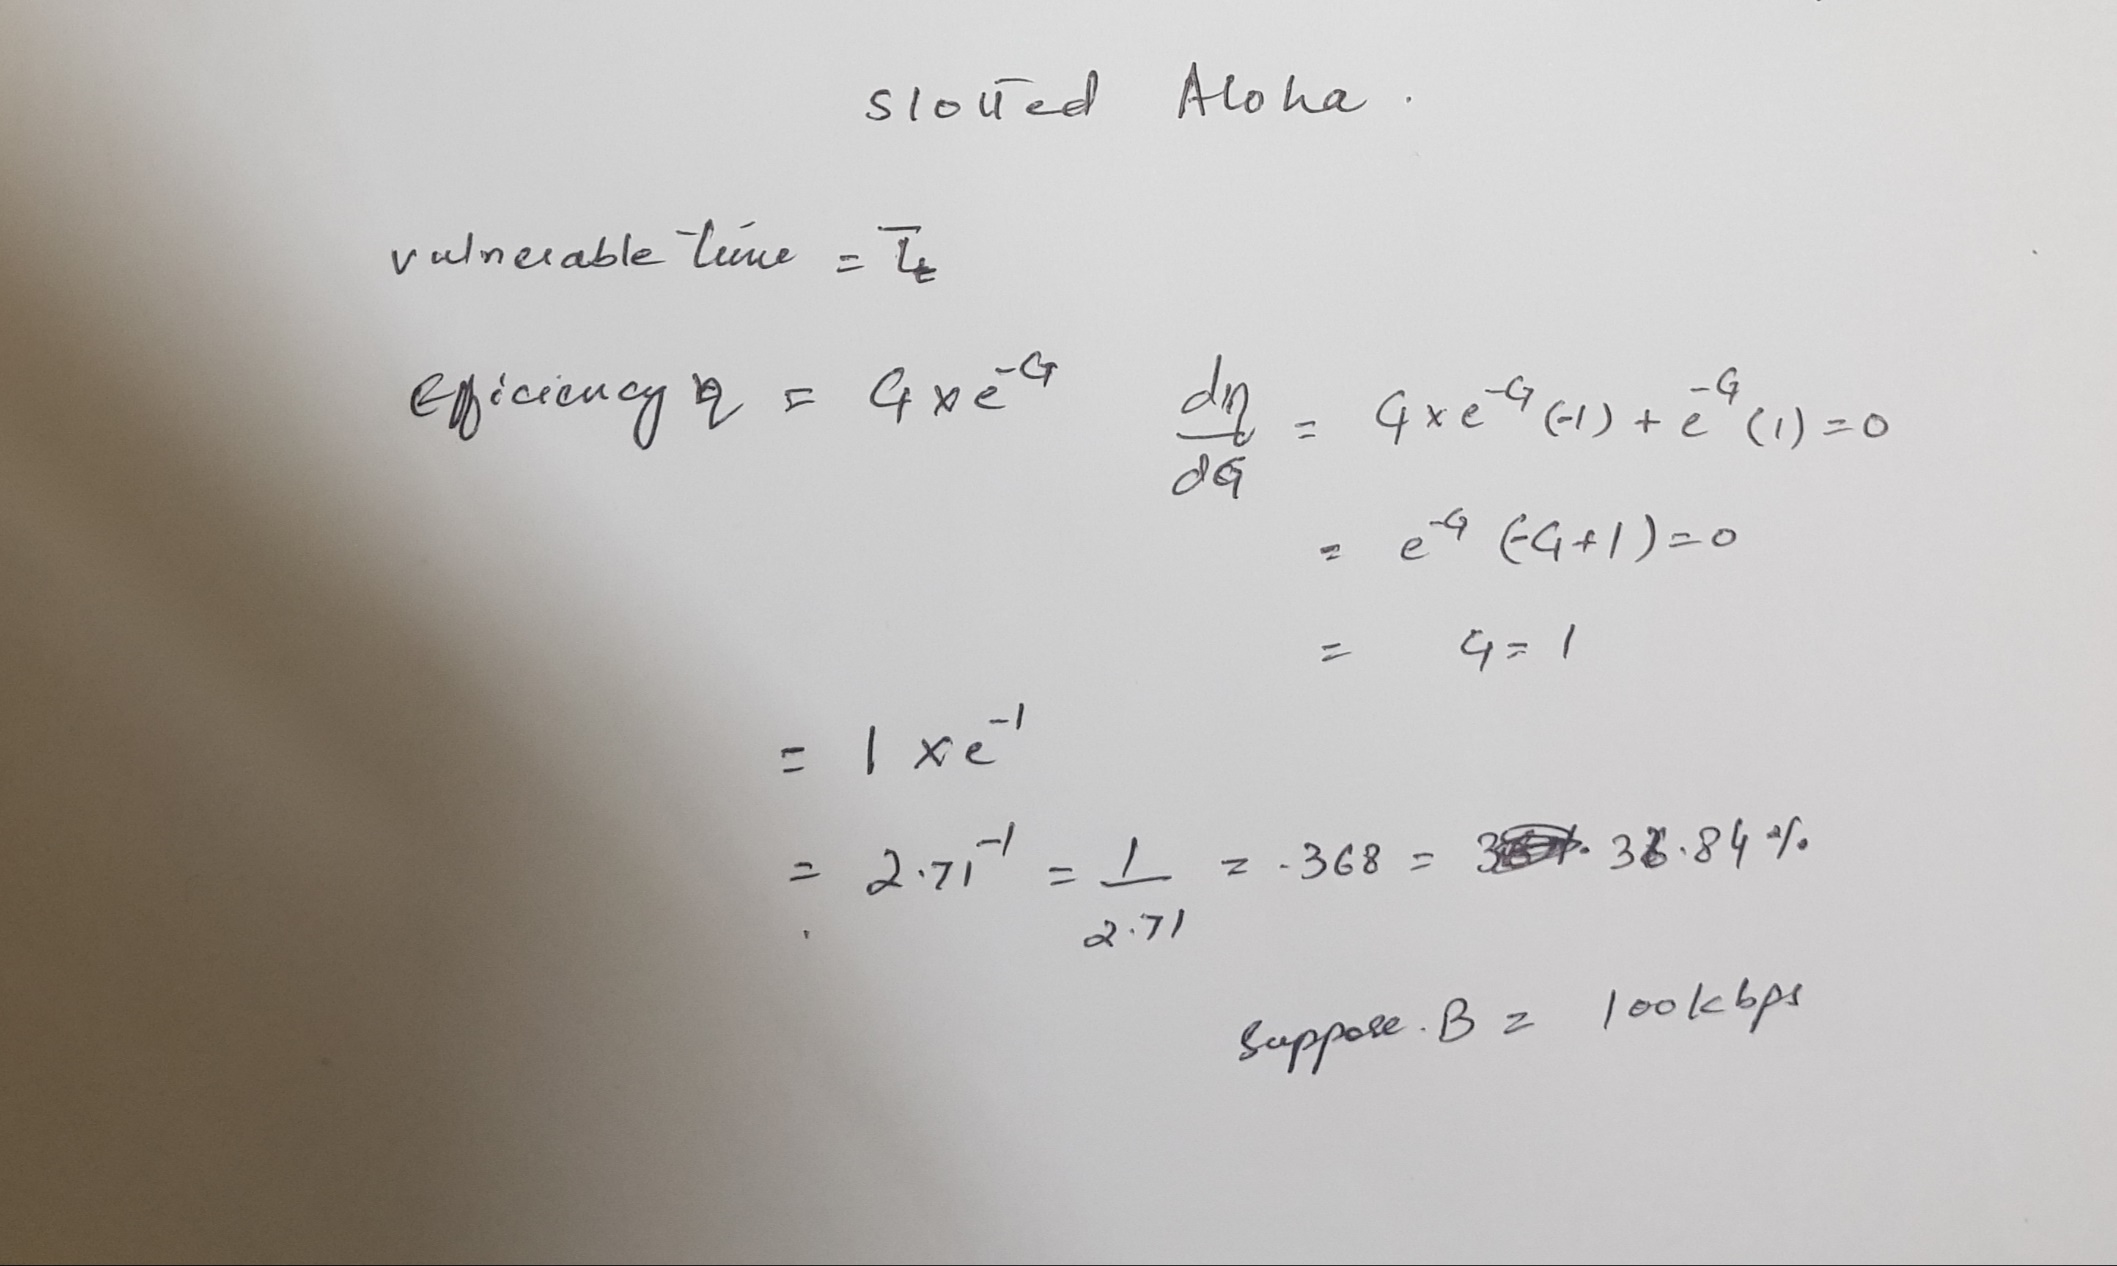 Slotted Aloha.
vulnerable time = Tt
Efficiency η = G × e^-G
dη/dG = G × e^-G (-1) + e^-G (1) = 0
= e^-G (-G+1) = 0
= G = 1
= 1 × e^-1
= 2.71^-1 = 1/2.71 = .368 = 36.84 %
Suppose. B = 100kbps